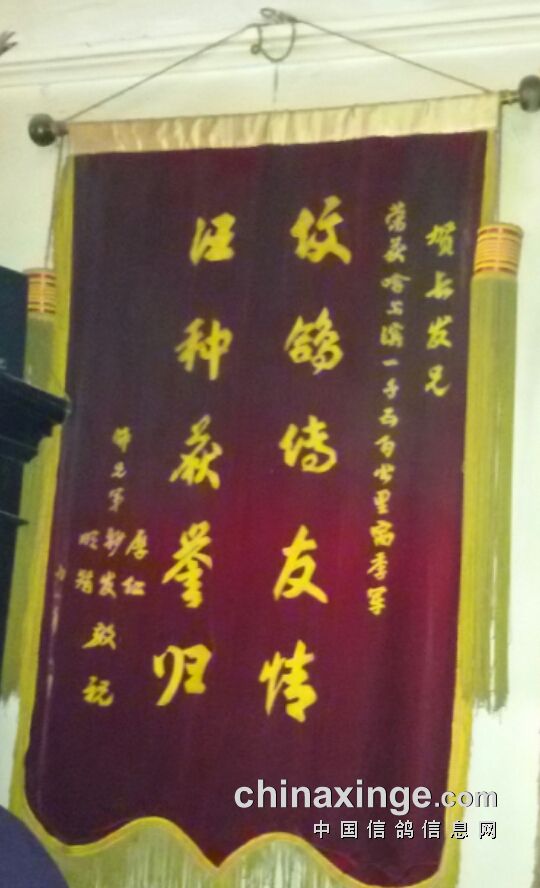 贺长发兄
荣获哈上滨一千五百公里赛季军
伩鸽传友情
汪种获誉归
师兄弟
厚红
敬祝
chinaxinge.com
中国信鸽信息网